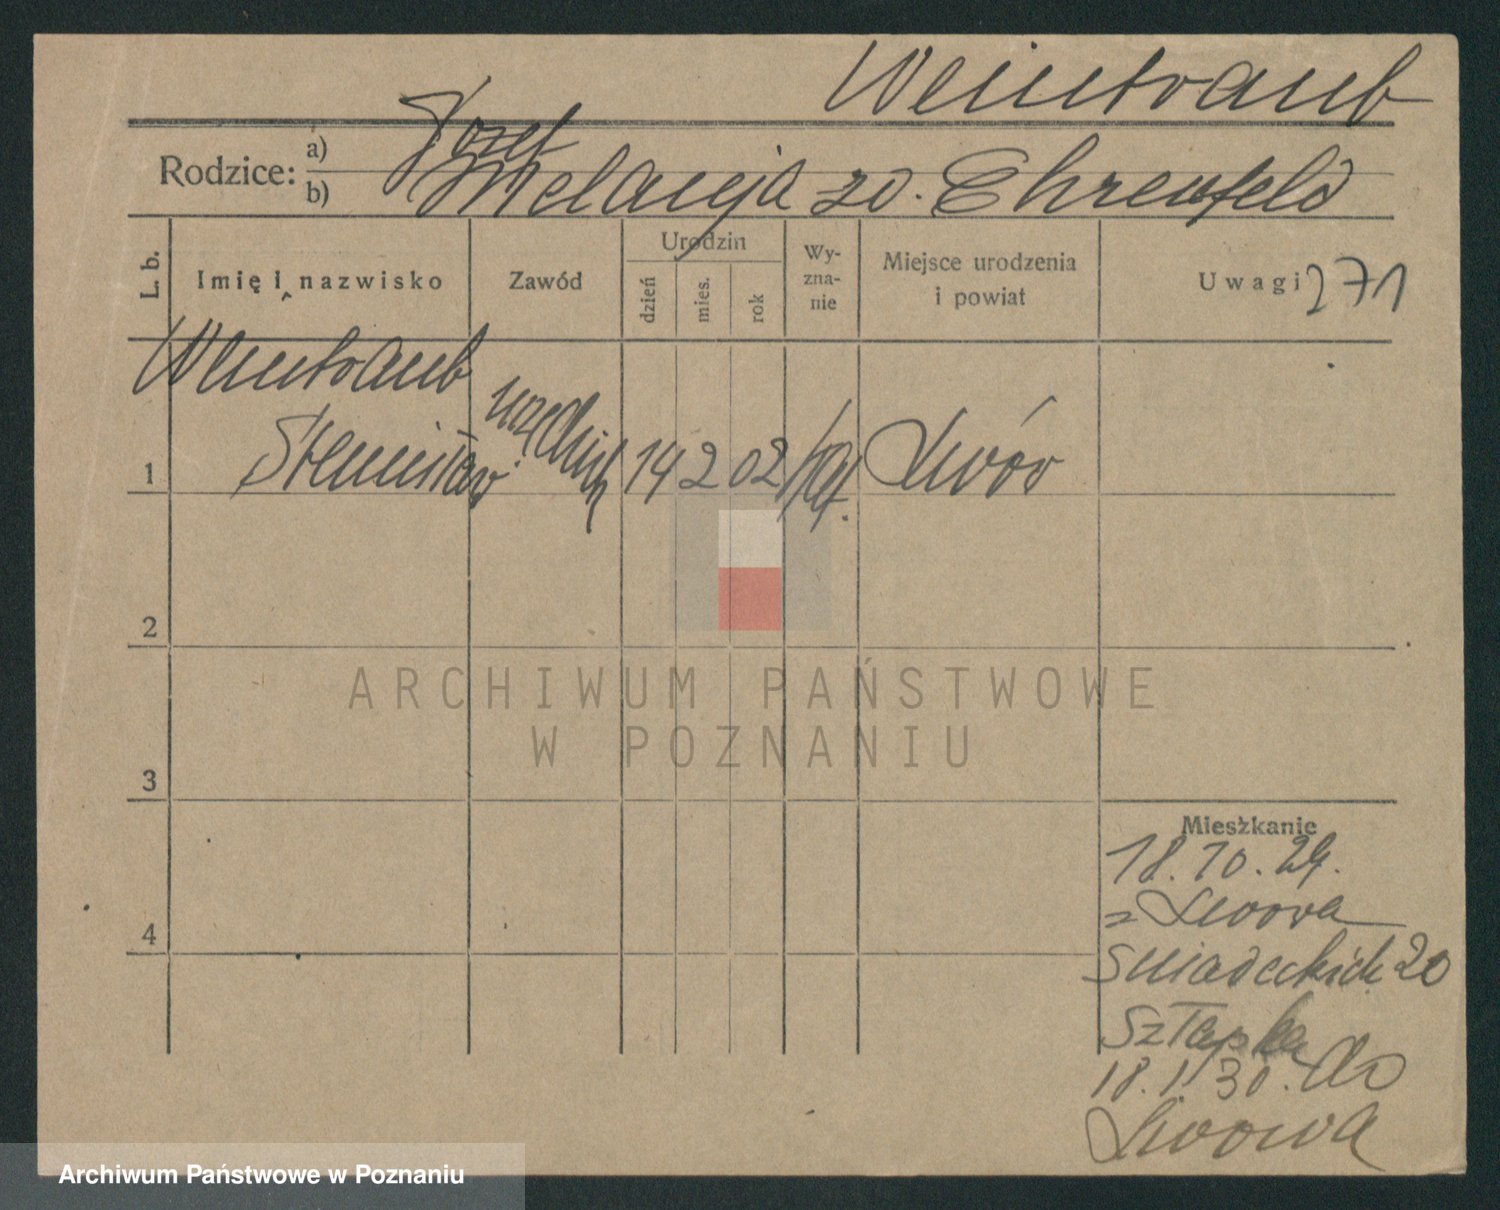 Weintraub
Rodzice: a) Józef
b) Melanja zd. Ehrenfeld
L. b. Imię i nazwisko Zawód Urodzin dzień mies. rok Wy-zna-nie Miejsce urodzenia i powiat Uwagi 271
Weintraub
1 Stanisław urzędnik 14 2 02 Lwów
2
3
4
Mieszkanie
18.10.29.
z Lwowa
Śniadeckich 20
Sztapka
18.1.30. do
Lwowa
ARCHIWUM PAŃSTWOWE
W POZNANIU
Archiwum Państwowe w Poznaniu